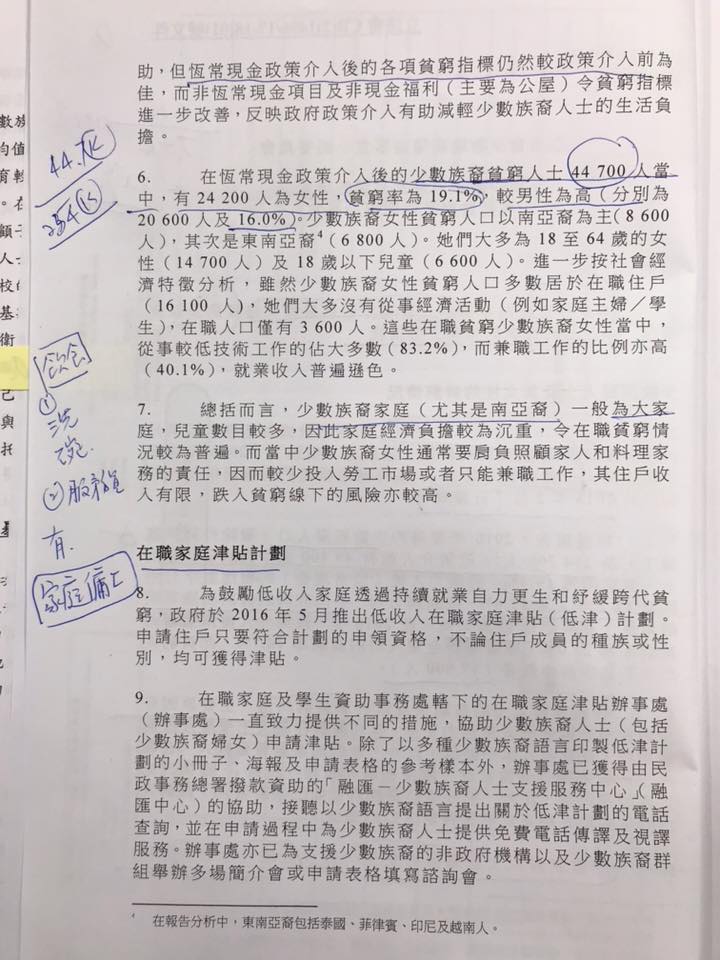 助，但恆常現金政策介入後的各項貧窮指標仍然較政策介入前為
佳，而非恆常現金項目及非現金福利（主要為公屋）令貧窮指標
進一步改善，反映政府政策介入有助減輕少數族裔人士的生活負
擔。
44.7K
6. 在恆常現金政策介入後的少數族裔貧窮人士 44 700 人當
中，有 24 200 人為女性，貧窮率為 19.1%，較男性為高（分別為
20 600 人及 16.0%）。少數族裔女性貧窮人口以南亞裔為主（8 600
人），其次是東南亞裔4（6 800 人）。她們大多為 18 至 64 歲的女
性（14 700 人）及 18 歲以下兒童（6 600 人）。進一步按社會經
濟特徵分析，雖然少數族裔女性貧窮人口多數居於在職住戶
（16 100 人），她們大多沒有從事經濟活動（例如家庭主婦／學
生），在職人口僅有 3 600 人。這些在職貧窮少數族裔女性當中，
從事較低技術工作的佔大多數（83.2%），而兼職工作的比例亦高
（40.1%），就業收入普遍遜色。
飲食
① 洗
碗
② 服務員
7. 總括而言，少數族裔家庭（尤其是南亞裔）一般為大家
庭，兒童數目較多，因此家庭經濟負擔較為沉重，令在職貧窮情
況較為普遍。而當中少數族裔女性通常要肩負照顧家人和料理家
務的責任，因而較少投入勞工市場或者只能兼職工作，其住戶收
入有限，跌入貧窮線下的風險亦較高。
有
家庭傭工
在職家庭津貼計劃
8. 為鼓勵低收入家庭透過持續就業自力更生和紓緩跨代貧
窮，政府於 2016 年 5 月推出低收入在職家庭津貼（低津）計劃。
申請住戶只要符合計劃的申領資格，不論住戶成員的種族或性
別，均可獲得津貼。
9. 在職家庭及學生資助事務處轄下的在職家庭津貼辦事處
（辦事處）一直致力提供不同的措施，協助少數族裔人士（包括
少數族裔婦女）申請津貼。除了以多種少數族裔語言印製低津計
劃的小冊子、海報及申請表格的參考樣本外，辦事處已獲得由民
政事務總署撥款資助的「融匯－少數族裔人士支援服務中心」（融
匯中心）的協助，接聽以少數族裔語言提出關於低津計劃的電話
查詢，並在申請過程中為少數族裔人士提供免費電話傳譯及視譯
服務。辦事處亦已為支援少數族裔的非政府機構以及少數族裔群
組舉辦多場簡介會或申請表格填寫諮詢會。
4 在報告分析中，東南亞裔包括泰國、菲律賓、印尼及越南人。